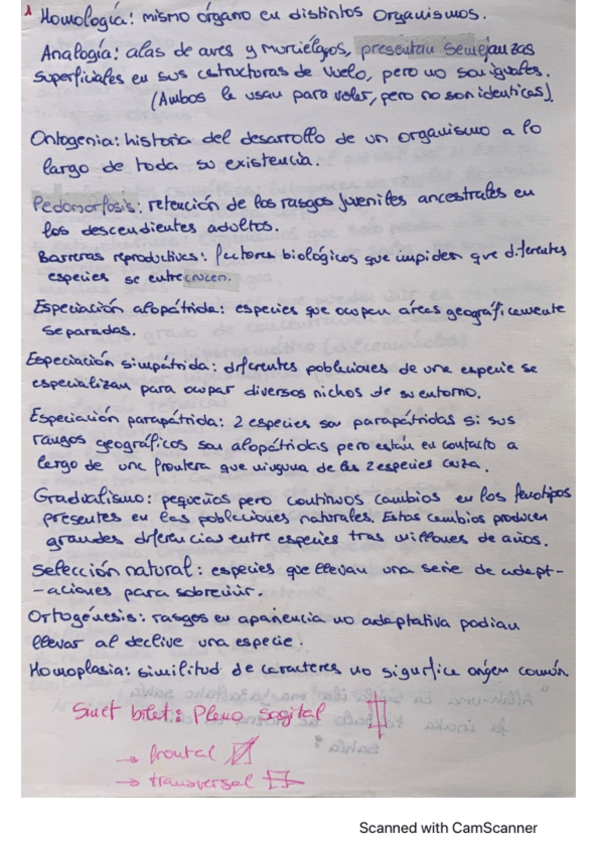 1 Homología: mismo órgano en distintos organismos.
Analogía: alas de aves y murciélagos, presentan semejanzas
superficiales en sus estructuras de vuelo, pero no son iguales.
(Ambos la usan para volar, pero no son identicas).
Ontogenia: historia del desarrollo de un organismo a lo
largo de toda su existencia.
Pedomorfosis: retención de los rasgos juveniles ancestrales en
los descendientes adultos.
Barreras reproductivas: factores biológicos que impiden que diferentes
especies se entrecrucen.
Especiación alopátrida: especies que ocupan áreas geográficamente
separadas.
Especiación simpátrida: diferentes poblaciones de una especie se
especializan para ocupar diversos nichos de su entorno.
Especiación parapátrida: 2 especies son parapátridas si sus
rangos geográficos son alopátridas pero están en contacto a
largo de una frontera que ninguna de las 2 especies cruza.
Gradualismo: pequeños pero continuos cambios en los fenotipos
presentes en las poblaciones naturales. Estos cambios producen
grandes diferencias entre especies tras millones de años.
Selección natural: especies que llevan una serie de adapt-
-aciones para sobrevivir.
Ortogénesis: rasgos en apariencia no adaptativa podían
llevar al declive una especie.
Homoplasia: similitud de caracteres no significa origen común.
Simet bilat: Plano Sagital
→ frontal
→ transversal
Scanned with CamScanner